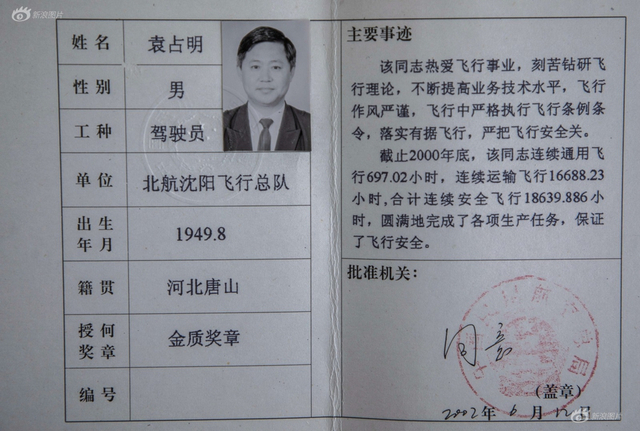 新浪图片
姓名 袁占明
性别 男
工种 驾驶员
单位 北航沈阳飞行总队
出生年月 1949.8
籍贯 河北唐山
授何奖章 金质奖章
编号
主要事迹
该同志热爱飞行事业，刻苦钻研飞
行理论，不断提高业务技术水平，飞行
作风严谨，飞行中严格执行飞行条例条
令，落实有据飞行，严把飞行安全关。
截止2000年底，该同志连续通用飞
行697.02小时，连续运输飞行16688.23
小时,合计连续安全飞行18639.886小
时，圆满地完成了各项生产任务，保证
了飞行安全。
批准机关：
同意
(盖章)
2002年6月12日
新浪图片